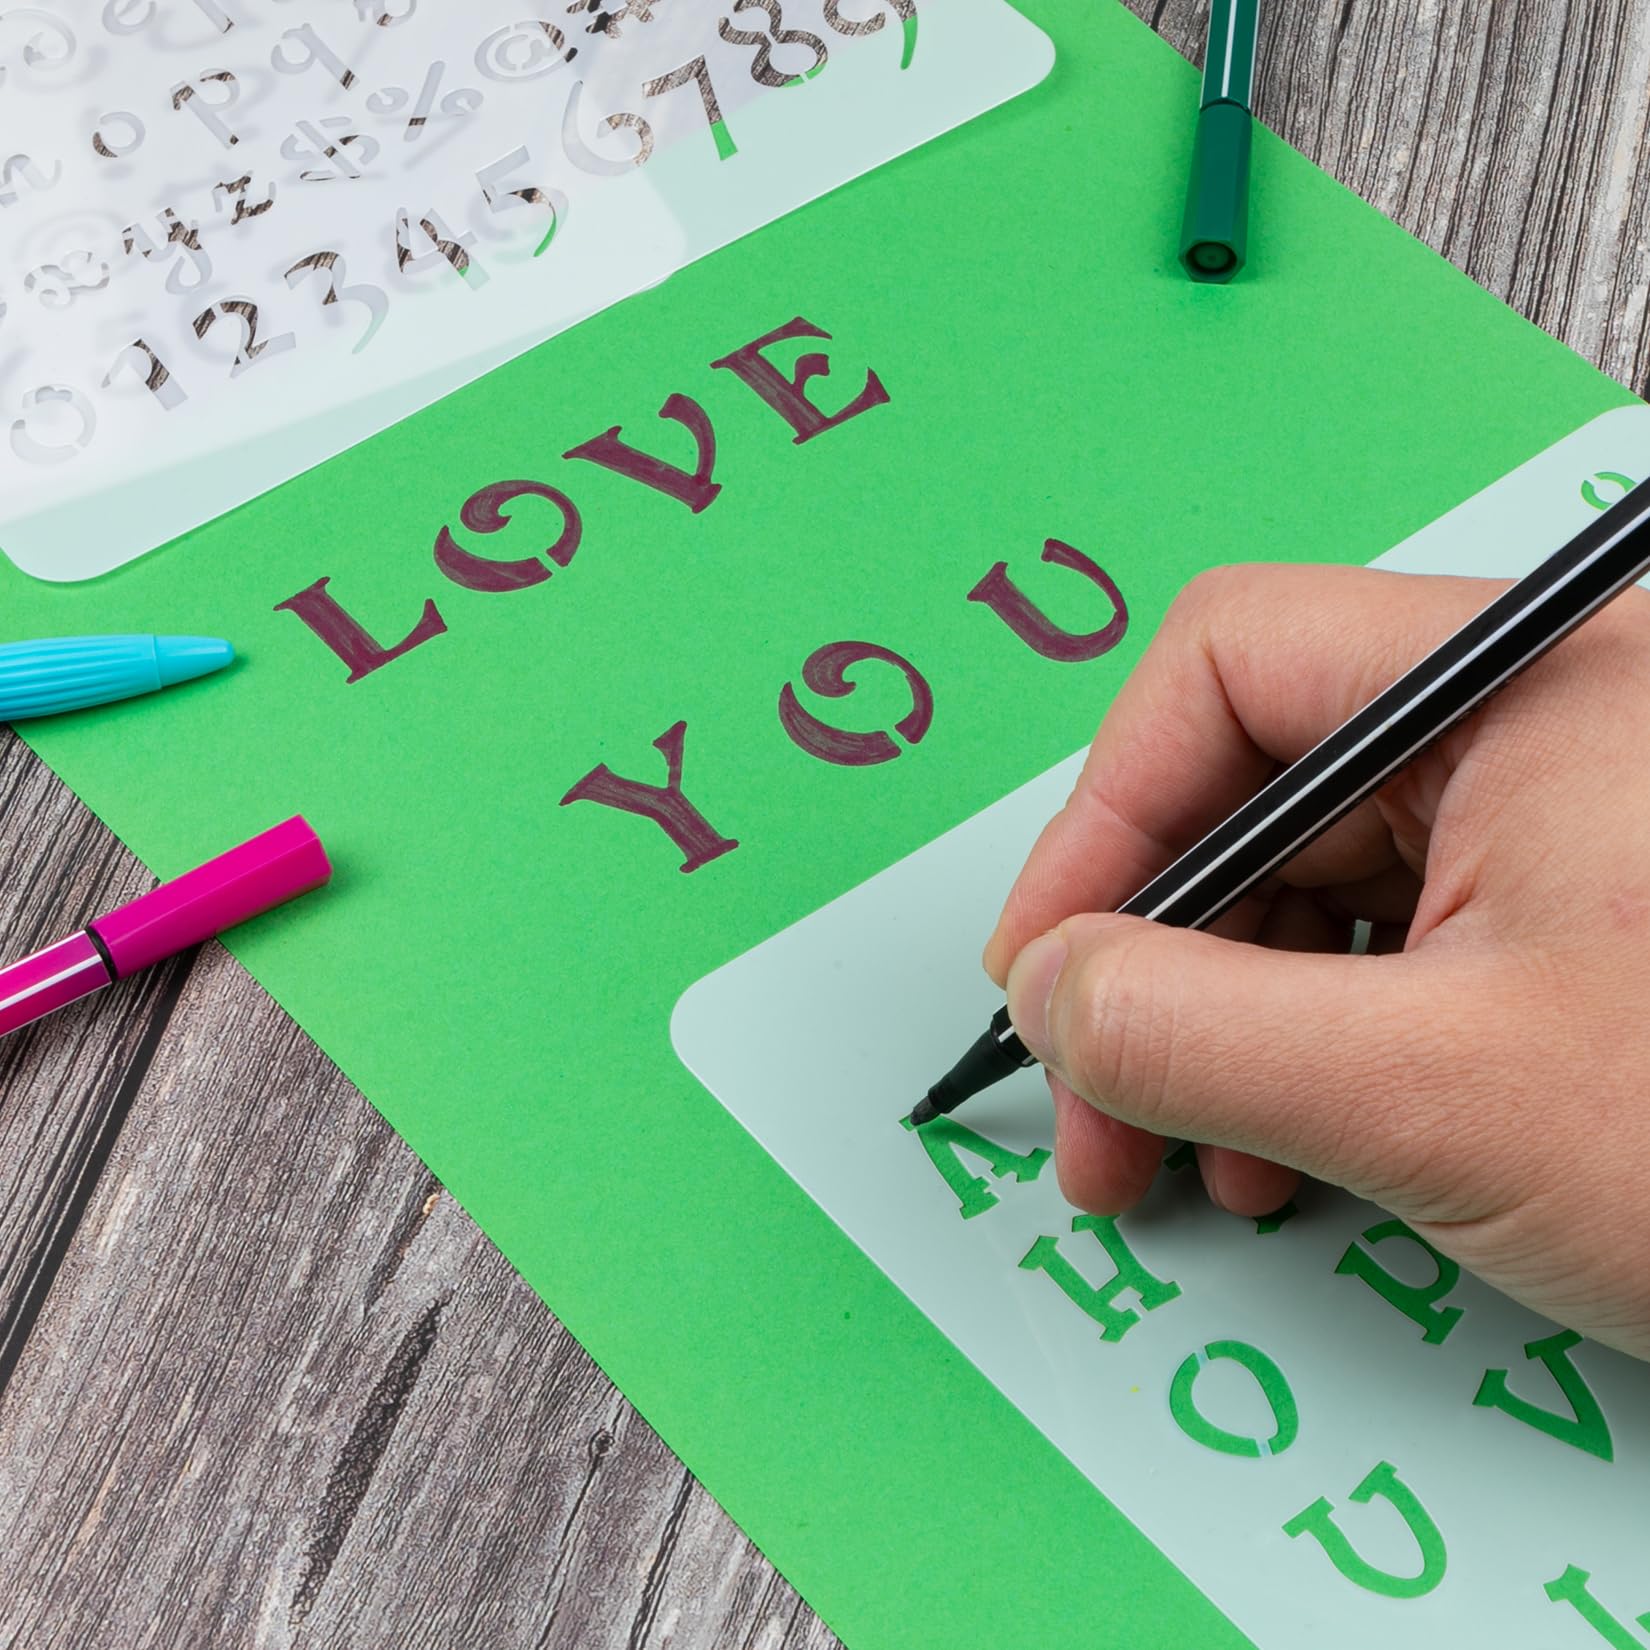 n o p q
x y z $ % @ *
0 1 2 3 4 5 6 7 8 9
LOVE
YOU
A
H
O
U